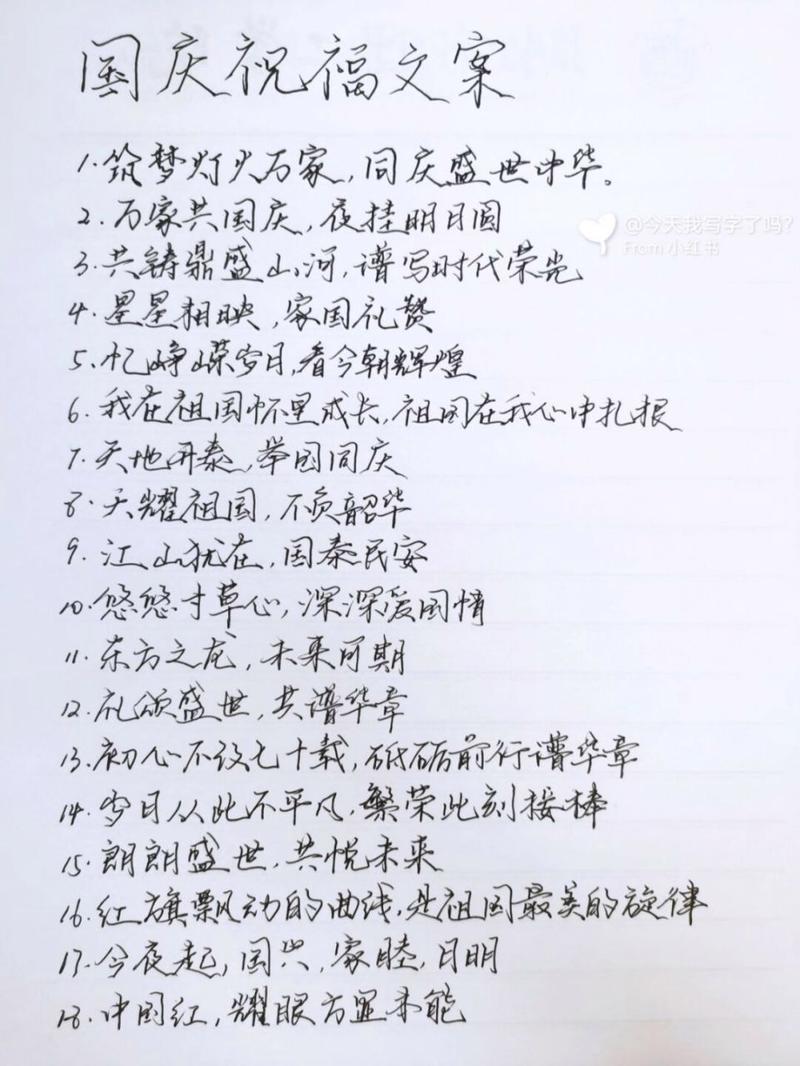 国庆祝福文案
1.筑梦灯火万家,同庆盛世中华。
2.万家共国庆,夜挂明月圆
@今天我写字了吗?
From 小红书
3.共铸鼎盛山河,谱写时代荣光
4.星星相映,家国礼赞
5.忆峥嵘岁月,看今朝辉煌
6.我在祖国怀里成长,祖国在我心中扎根
7.天地开泰,举国同庆
8.天耀祖国,不负韶华
9.江山犹在,国泰民安
10.悠悠寸草心,深深爱国情
11.东方之龙,未来可期
12.礼颂盛世,共谱华章
13.初心不改七十载,砥砺前行谱华章
14.岁月从此不平凡,繁荣此刻接棒
15.朗朗盛世,共悦未来
16.红旗飘动的曲线,是祖国最美的旋律
17.今夜起,国兴,家睦,月明
18.中国红,耀眼方显本能